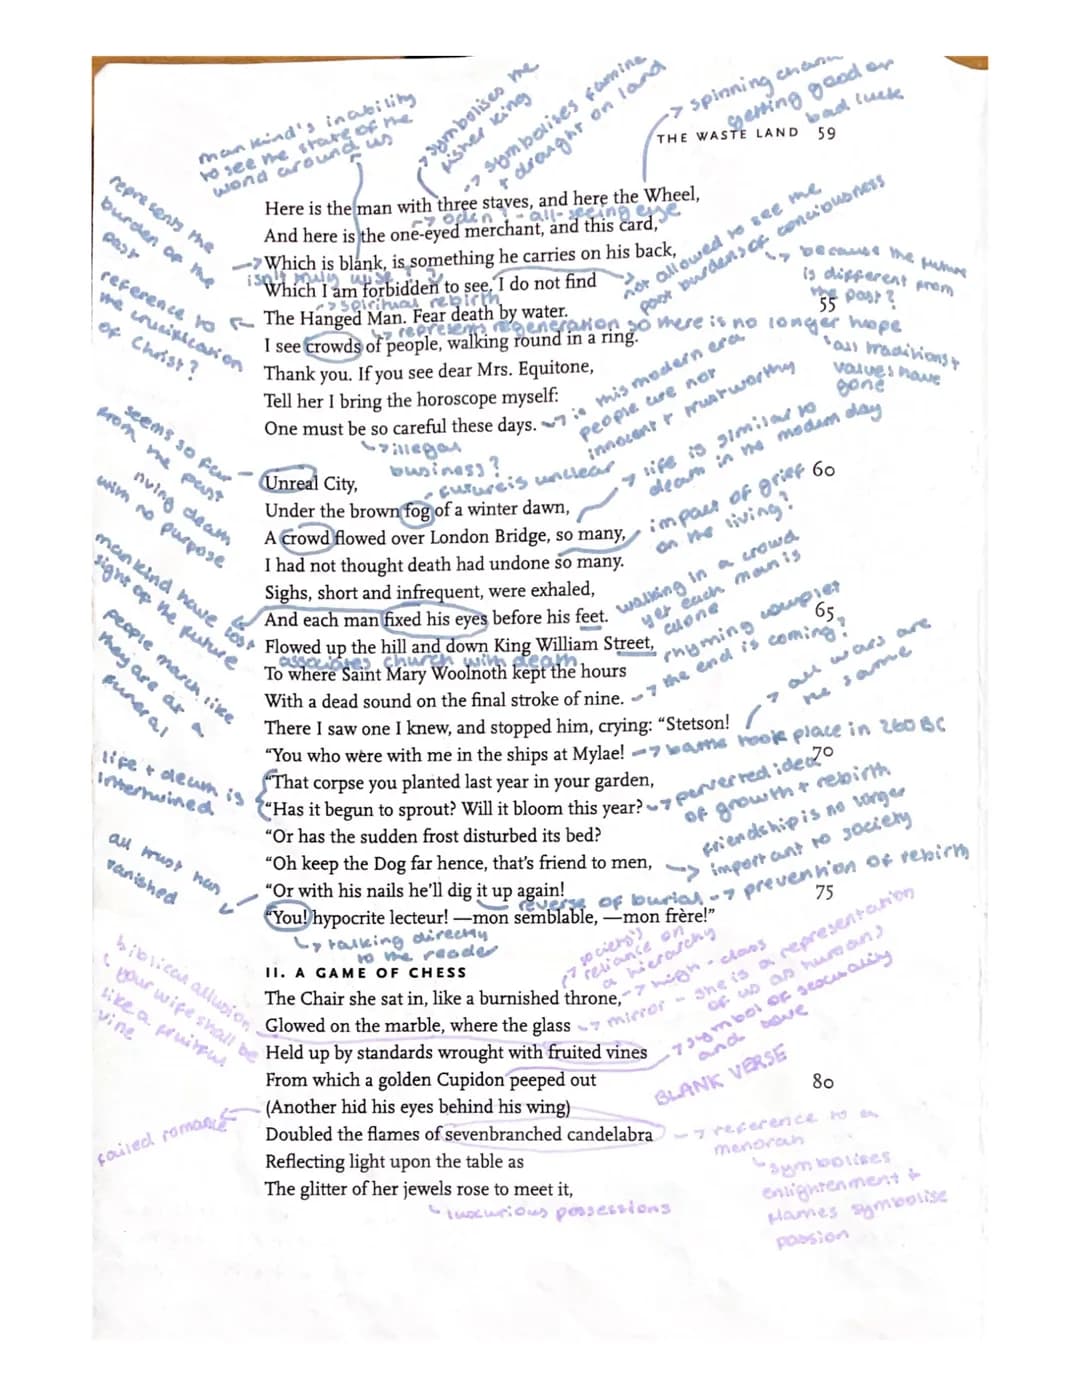 mankind's inability
to see the state of the
world around us
symbolises the
fisher king
symbolises famine
+ draught on land
spinning
getting good or
bad luck
THE WASTE LAND 59
Here is the man with three staves, and here the Wheel,
oden? - all-seeing eye
And here is the one-eyed merchant, and this card,
Which is blank, is something he carries on his back,
isn't truly wise
Which I am forbidden to see. I do not find
spiritual rebirth
The Hanged Man. Fear death by water. 55
represents regeneration so there is no longer hope
I see crowds of people, walking round in a ring.
Thank you. If you see dear Mrs. Equitone,
Tell her I bring the horoscope myself:
One must be so careful these days.
represents the
burden of the
past
reference to
the crucifixion
of Christ?
not allowed to see the
past burdens of conciousness
because the future
is different from
the past?
all traditions +
values have
gone
in this modern era
people are not
innocent + trustworthy
illegal
business?
Unreal City, 60
future is unclear
Under the brown fog of a winter dawn,
A crowd flowed over London Bridge, so many,
I had not thought death had undone so many.
Sighs, short and infrequent, were exhaled,
And each man fixed his eyes before his feet. 65
Flowed up the hill and down King William Street,
associates church with death
To where Saint Mary Woolnoth kept the hours
With a dead sound on the final stroke of nine.
There I saw one I knew, and stopped him, crying: “Stetson!
“You who were with me in the ships at Mylae! 70
“That corpse you planted last year in your garden,
“Has it begun to sprout? Will it bloom this year?
“Or has the sudden frost disturbed its bed?
“Oh keep the Dog far hence, that's friend to men,
“Or with his nails he'll dig it up again! 75
reverse of burial → prevention of rebirth
“You! hypocrite lecteur! —mon semblable, —mon frère!”
talking directly
to the reader
seems so far
from the past
living death
with no purpose
mankind have lost
sight of the future
people march like
they are at a
funeral
life + death is
intertwined
all trust has
vanished
life is similar to
death in the modern day
impact of grief
on the living?
walking in a crowd
yet each man is
alone
rhyming couplet
the end is coming?
all wars are
the same
battle took place in 260 BC
perverted idea
of growth + rebirth
friendship is no longer
important to society
II. A GAME OF CHESS
The Chair she sat in, like a burnished throne,
Glowed on the marble, where the glass
Held up by standards wrought with fruited vines
From which a golden Cupidon peeped out 80
(Another hid his eyes behind his wing)
Doubled the flames of sevenbranched candelabra
Reflecting light upon the table as
The glitter of her jewels rose to meet it,
luxurious possessions
biblical allusion
'your wife shall be
like a fruitful
vine
failed romance
society's
reliance on
a hierarchy
high-class
mirror - she is a representation
of us as humans
symbol of sexuality
and love
BLANK VERSE
reference to a
menorah
symbolises
enlightenment +
flames symbolise
passion